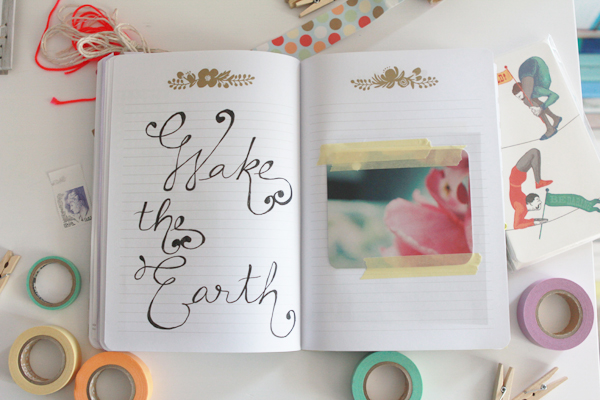 Wake
the
Earth